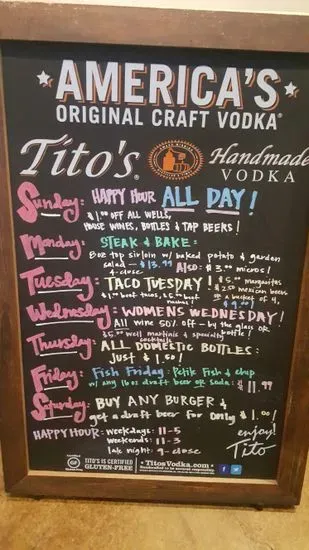 AMERICA'S
ORIGINAL CRAFT VODKA
Tito's Handmade
VODKA
Sunday: HAPPY HOUR ALL DAY!
$1.00 OFF ALL WELLS,
HOUSE WINES, BOTTLES & TAP BEERS!
Monday: STEAK & BAKE:
8oz top sirloin w/ baked potato & garden
salad - $13.99 Also: $3.00 micros!
4-close
Tuesday: TACO TUESDAY! $5.00 margaritas
$2.50 mexican beers
or a bucket of 4,
$9.00!
Wednesday: WOMENS WEDNESDAY!
All wine 50% off - by the glass or bottle!
$5.00 well martinis & specialty cocktails
Thursday: ALL DOMESTIC BOTTLES:
Just $1.50!
Friday: Fish Friday: Petite Fish & chip
w/ any 16oz draft beer or soda: $11.99
Saturday: BUY ANY BURGER &
get a draft beer for only $1.00!
HAPPY HOUR: weekdays: 11-5
weekends: 11-3
late night: 9-close
enjoy!
Tito
GF
TITO'S IS CERTIFIED
GLUTEN-FREE
TitosVodka.com
Handcrafted to be savored responsibly.